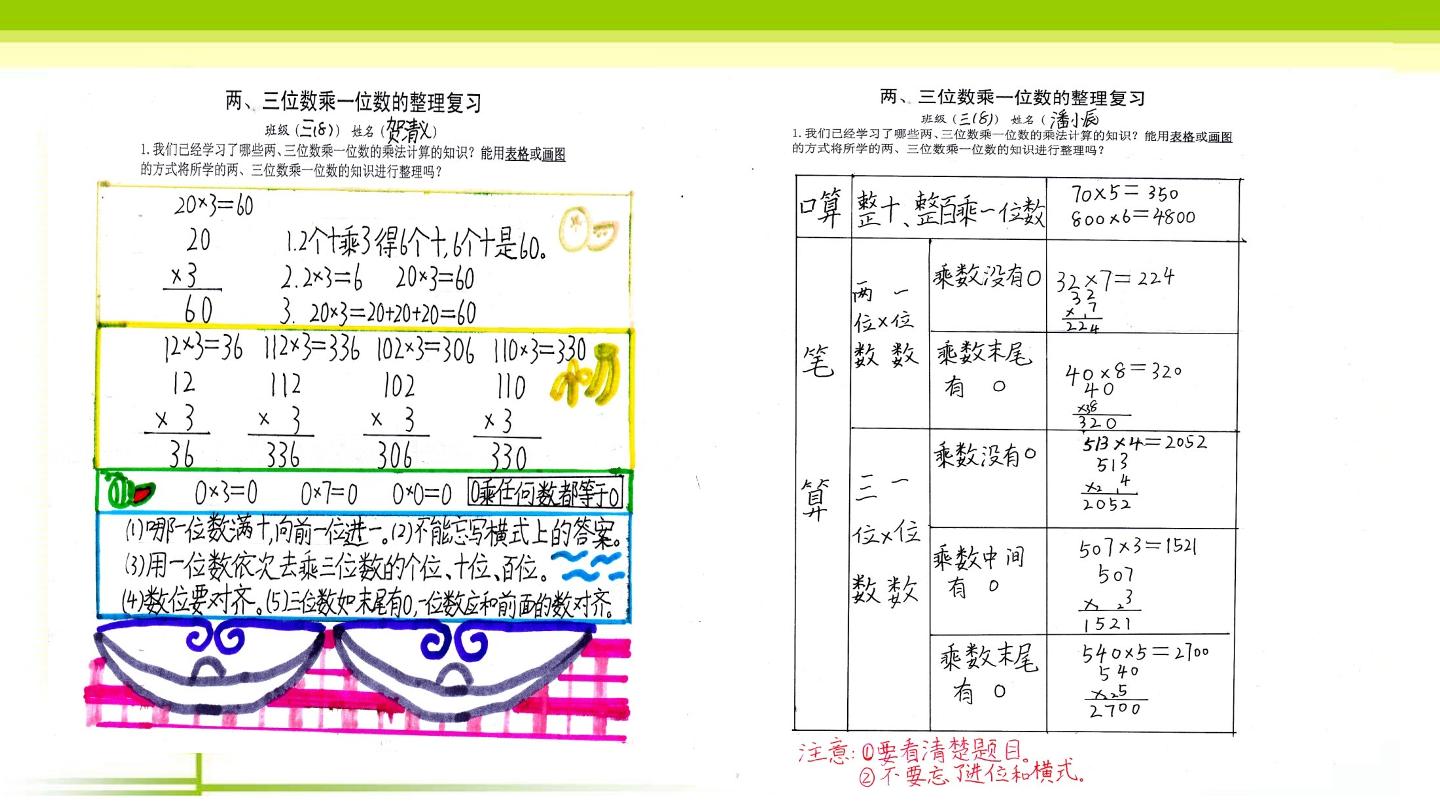 两、三位数乘一位数的整理复习
班级（三(8)） 姓名（贺清义）
1.我们已经学习了哪些两、三位数乘一位数的乘法计算的知识？能用表格或画图
的方式将所学的两、三位数乘一位数的知识进行整理吗？
20×3=60
20
×3
60
1.2个十乘3得6个十,6个十是60。
2.2×3=6 20×3=60
3. 20×3=20+20+20=60
12×3=36 112×3=336 102×3=306 110×3=330
12 112 102 110
× 3 × 3 × 3 ×3
36 336 306 330
0×3=0 0×7=0 0×0=0 0乘任何数都等于0
(1)哪一位数满十,向前一位进一。(2)不能忘写横式上的答案。
(3)用一位数依次去乘三位数的个位、十位、百位。
(4)数位要对齐。(5)三位数如末尾有0,一位数应和前面的数对齐。
两、三位数乘一位数的整理复习
班级（三(8)） 姓名（潘小辰
1.我们已经学习了哪些两、三位数乘一位数的乘法计算的知识？能用表格或画图
的方式将所学的两、三位数乘一位数的知识进行整理吗？
口算 整十、整百乘一位数
70×5=350
800×6=4800
笔算
两位数×一位数
乘数没有0
32×7=224
32
×17
224
乘数末尾有0
40×8=320
40
×38
320
三位数×一位数
乘数没有0
513×4=2052
513
×2 1 4
2052
乘数中间有0
507×3=1521
507
×1 2 3
1521
乘数末尾有0
540×5=2700
540
×25
2700
注意:①要看清楚题目。
②不要忘了进位和横式。